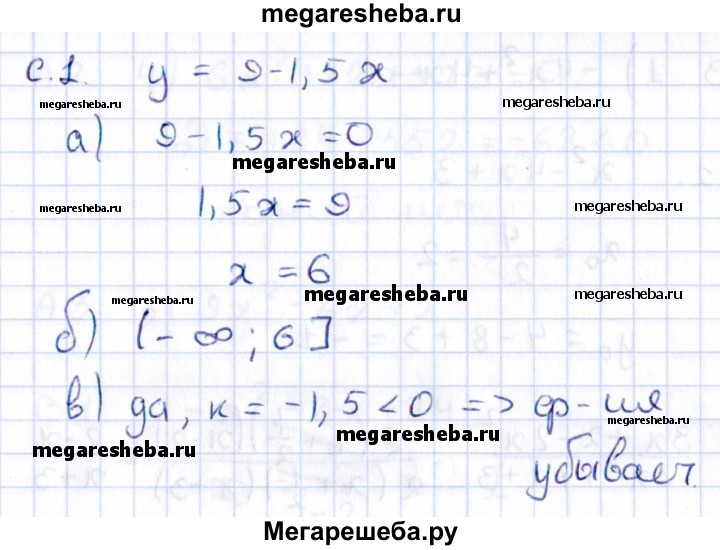 megaresheba.ru
С.1. y = 9 - 1,5x
megaresheba.ru megaresheba.ru
а) 9 - 1,5x = 0
megaresheba.ru
1,5x = 9
megaresheba.ru megaresheba.ru
x = 6
megaresheba.ru megaresheba.ru megaresheba.ru
б) (-∞; 6]
в) да, к = -1,5 < 0 => ф-ция
megaresheba.ru megaresheba.ru megaresheba.ru
убывает.
Мегарешеба.ру